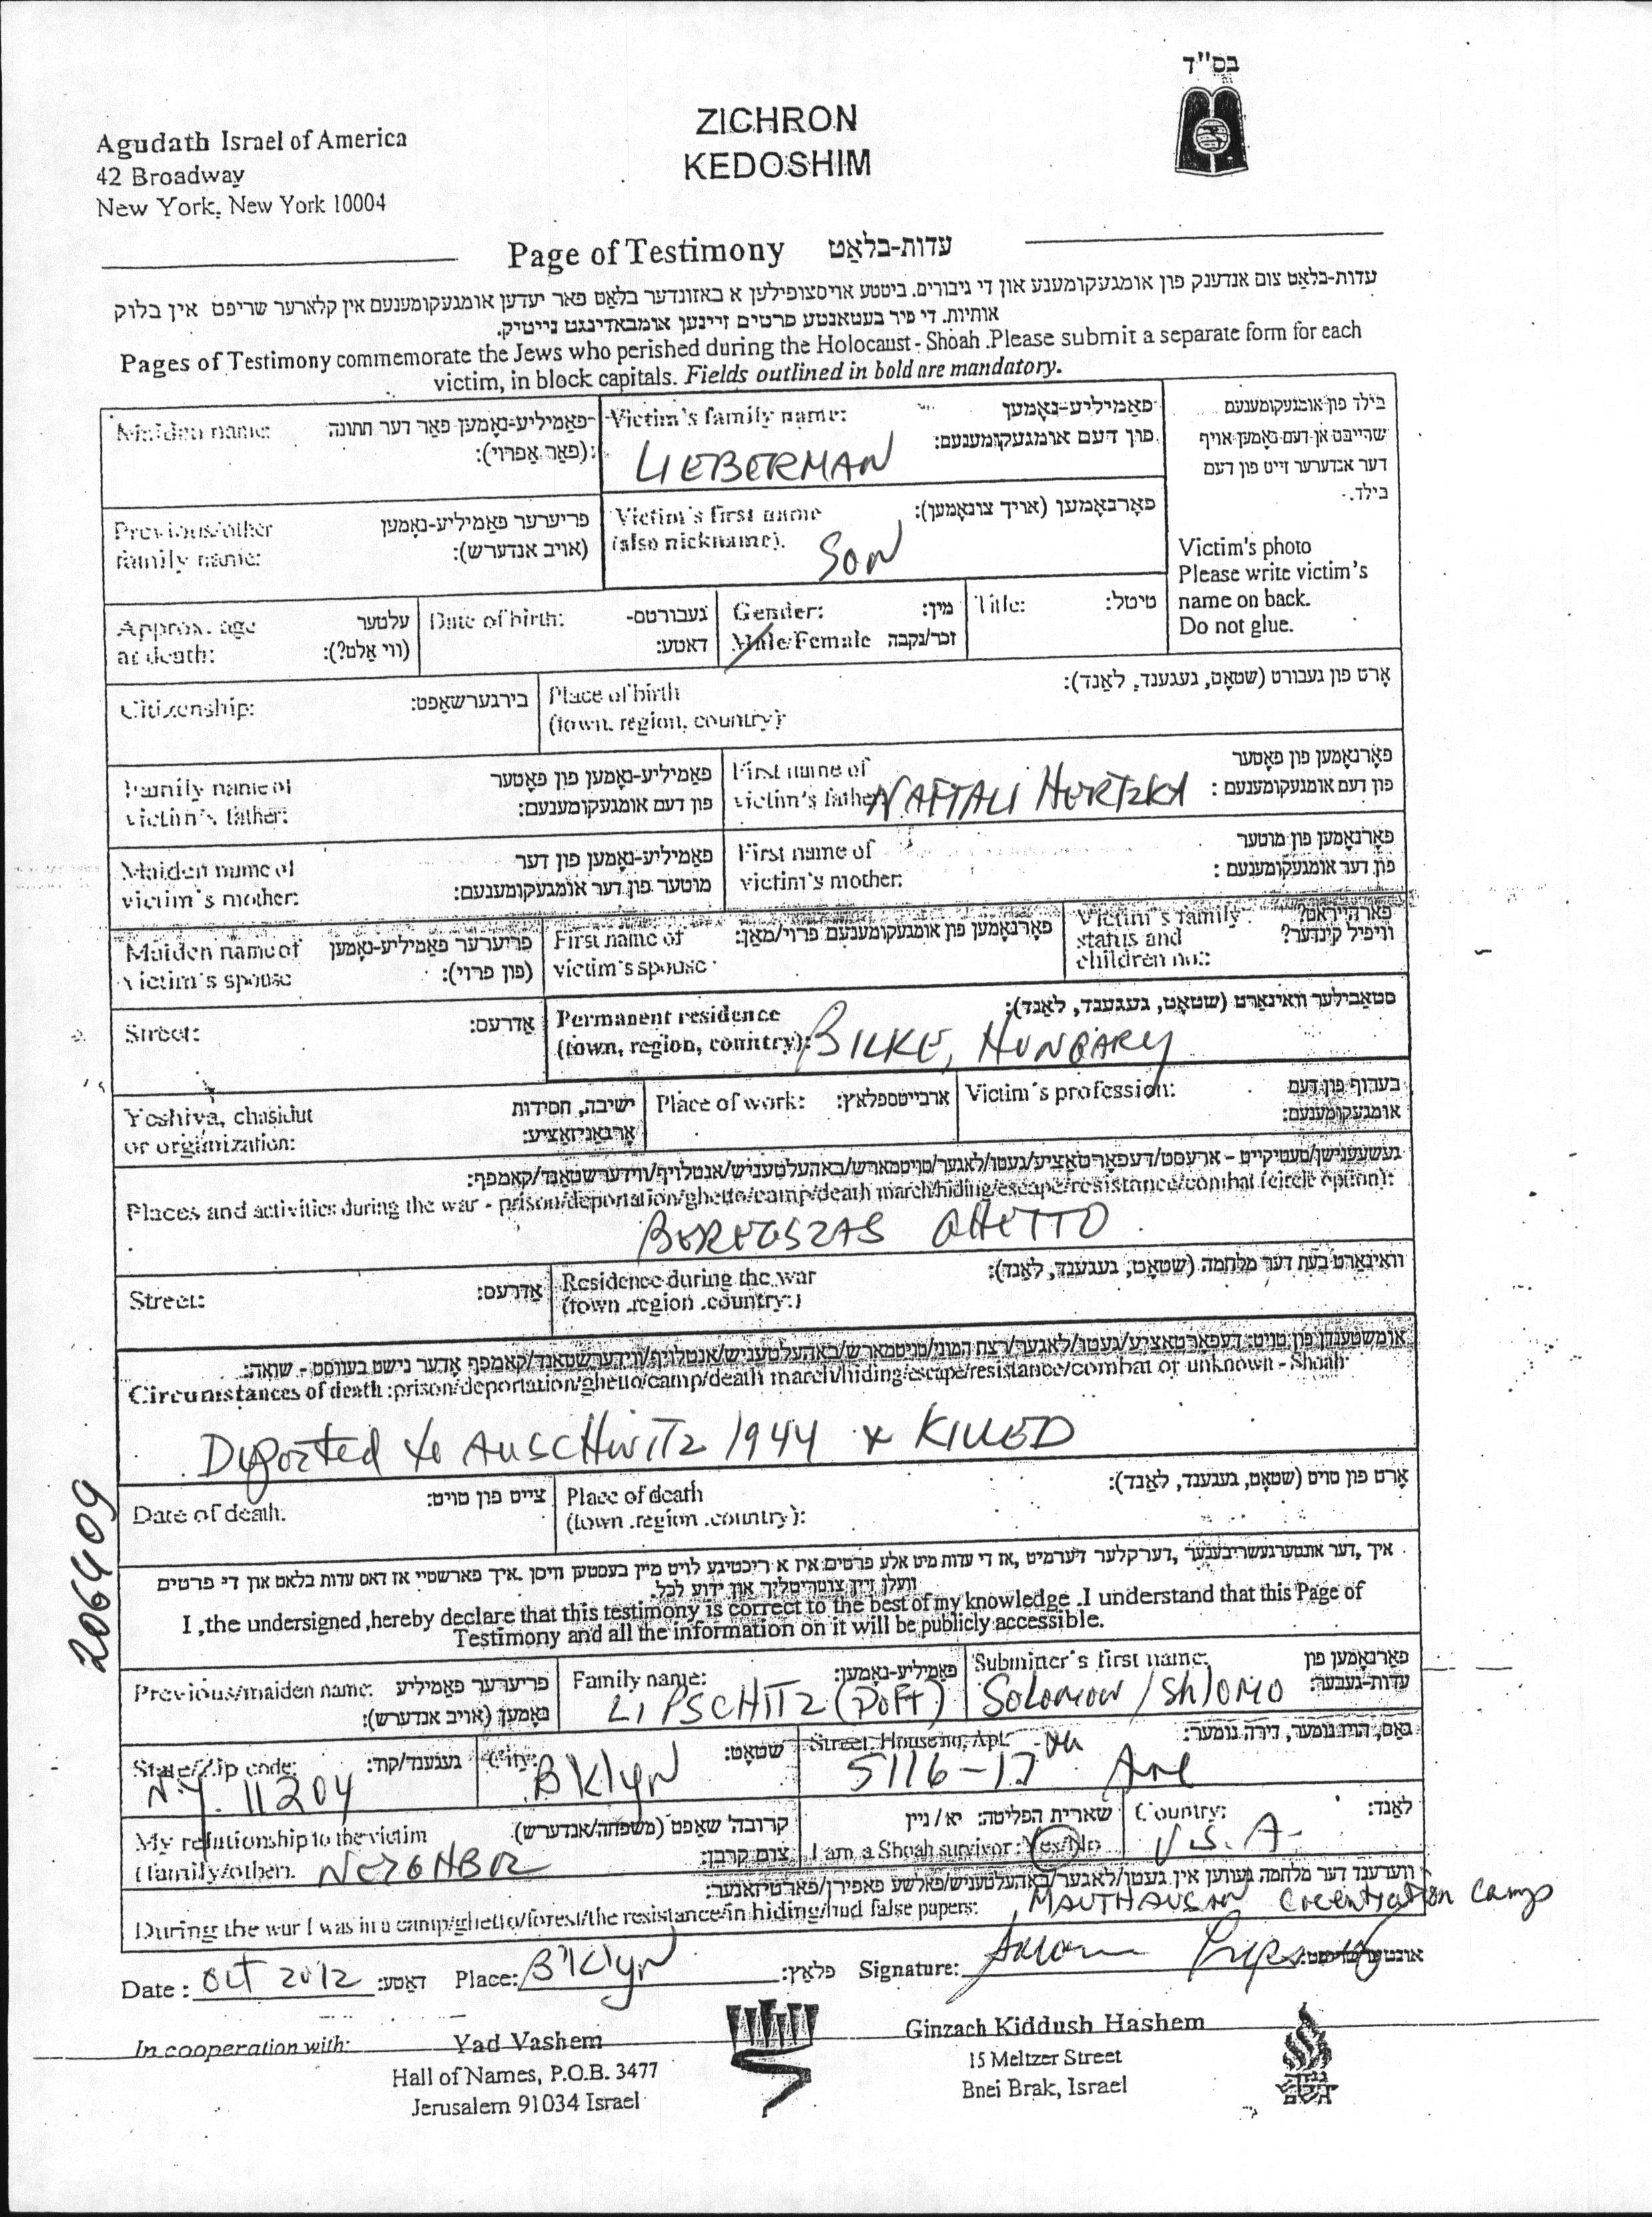 בס"ד
Agudath Israel of America
42 Broadway
New York, New York 10004
ZICHRON
KEDOSHIM
Page of Testimony עדות-בלאַט
עדות-בלאַט צום אנדענק פון אומגעקומענע און די גיבורים. ביטטע אויסצופילען א באזונדער בלאַט פאר יעדען אומגעקומענעם אין קלארער שריפט אין בלוק
אותיות. די פיר בעטאנטע פרטים זיינען אומבאדינגט נייטיק.
Pages of Testimony commemorate the Jews who perished during the Holocaust - Shoah .Please submit a separate form for each
victim, in block capitals. Fields outlined in bold are mandatory.
Maiden name: פאַמיליע-נאָמען פאַר דער חתונה
(פאַר אַפרוי):
Victim's family name: פאַמיליע-נאָמען
פון דעם אומגעקומענעם:
LIEBERMAN
בילד פון אומגעקומענעם
שרייבט אן דעם נאָמען אויף
דער אנדערער זייט פון דעם
בילד.
Victim's photo
Please write victim's
name on back.
Do not glue.
Previous/other
family name: פריערער פאַמיליע-נאָמען
(אויב אנדערש):
Victim's first name
(also nickname). פאָרנאָמען (אויך צונאָמען):
SON
Approx. age
at death: עלטער
(ווי אַלט?):
Date of birth: געבורטס-
דאטע:
Gender: מין:
Male/Female זכר/נקבה
Title: טיטל:
Citizenship: בירגערשאַפט:
Place of birth
(town, region, country): אָרט פון געבורט (שטאָט, געגענד, לאַנד):
Family name of
victim's father: פאַמיליע-נאָמען פון פאָטער
פון דעם אומגעקומענעם:
First name of
victim's father פאָרנאָמען פון פאָטער
פון דעם אומגעקומענעם :
NAFTALI HERTZKA
Maiden name of
victim's mother: פאַמיליע-נאָמען פון דער
מוטער פון דער אומגעקומענעם:
First name of
victim's mother: פאָרנאָמען פון מוטער
פון דער אומגעקומענעם :
Maiden name of
victim's spouse פריערער פאַמיליע-נאָמען
(פון פרוי):
First name of
victim's spouse פאָרנאָמען פון אומגעקומענעם פרוי/מאַן:
Victim's family
status and
children no.: פארהייראט?
וויפיל קינדער?
Street: אַדרעס:
Permanent residence
(town, region, country): סטאַבילער וואוינאָרט (שטאָט, געגענד, לאַנד):
BILKE, HUNGARY
Yeshiva, chasidut
or organization: ישיבה, חסידות
אָרגאַניזאַציע:
Place of work: ארבייטספלאץ:
Victim's profession: בערוף פון דעם
אומגעקומענעם:
געשעענישן/טעטיקייט - ארעסט/דעפּאָרטאַציע/געטו/לאגער/טויטמארש/באהעלטעניש/אנטלויף/ווידערשטאַנד/קאמפף:
Places and activities during the war - prison/deportation/ghetto/camp/death march/hiding/escape/resistance/combat (circle option):
BEREGSZAS GHETTO
Street: אַדרעס:
Residence during the war
(town .region .country:) וואוינאָרט בעת דער מלחמה (שטאָט, געגענד, לאַנד):
אומשטענדן פון טויט: דעפאַרטאַציע/געטו/לאגער/רצח המוני/טויטמארש/באהעלטעניש/אנטלויף/ווידערשטאַנד/קאמפף אָדער נישט בעוואוסט - שואה:
Circumstances of death :prison/deportation/ghetto/camp/death march/hiding/escape/resistance/combat or unknown - Shoah
Deported to AUSCHWITZ 1944 + KILLED
206409
Date of death: צייט פון טויט:
Place of death
(town .region .country): אָרט פון טויט (שטאָט, געגענד, לאַנד):
איך ,דער אונטערגעשריבענער ,דערקלער דערמיט ,אז די עדות מיט אלע פרטים אין א ריכטיגע לויט מיין בעסטען וויסן .איך פארשטיי אז דאס עדות בלאט און די פרטים
וועלן זיין צוטריטליך און ידוע לכל.
I ,the undersigned ,hereby declare that this testimony is correct to the best of my knowledge .I understand that this Page of
Testimony and all the information on it will be publicly accessible.
Previous/maiden name: פריערער פאַמיליע
נאָמען (אויב אנדערש):
Family name: פאַמיליע-נאָמען:
LIPSCHITZ (POFT)
Submitter's first name: פאָרנאָמען פון
עדות-געבער:
Solomon / Shlomo
State/Zip code: געגענד/קוד:
N.Y. 11204
City: שטאָט:
BKlyn
Street, House no, Apt. גאַס, הויז נומער, דירה נומער:
5116 - 17 th Ave
My relationship to the victim
(family/other). קרובה' שאפט (משפחה/אנדערש)
צום קרבן:
NEIGHBOR
שארית הפליטה: יא / ניין
I am a Shoah survivor : Yes/No
Country: לאַנד:
U.S.A.
ווערענד דער מלחמה געווען אין געטו/לאגער/באהעלטעניש/פאלשע פאפירן/פארטיזאנער:
During the war I was in a camp/ghetto/forest/the resistance/in hiding/had false papers:
MAUTHAUSEN Concentration Camp
Date : Oct 2012 דאטע: Place: BKlyn פלאַץ: Signature:
In cooperation with: Yad Vashem
Hall of Names, P.O.B. 3477
Jerusalem 91034 Israel
Ginzach Kiddush Hashem
15 Meltzer Street
Bnei Brak, Israel